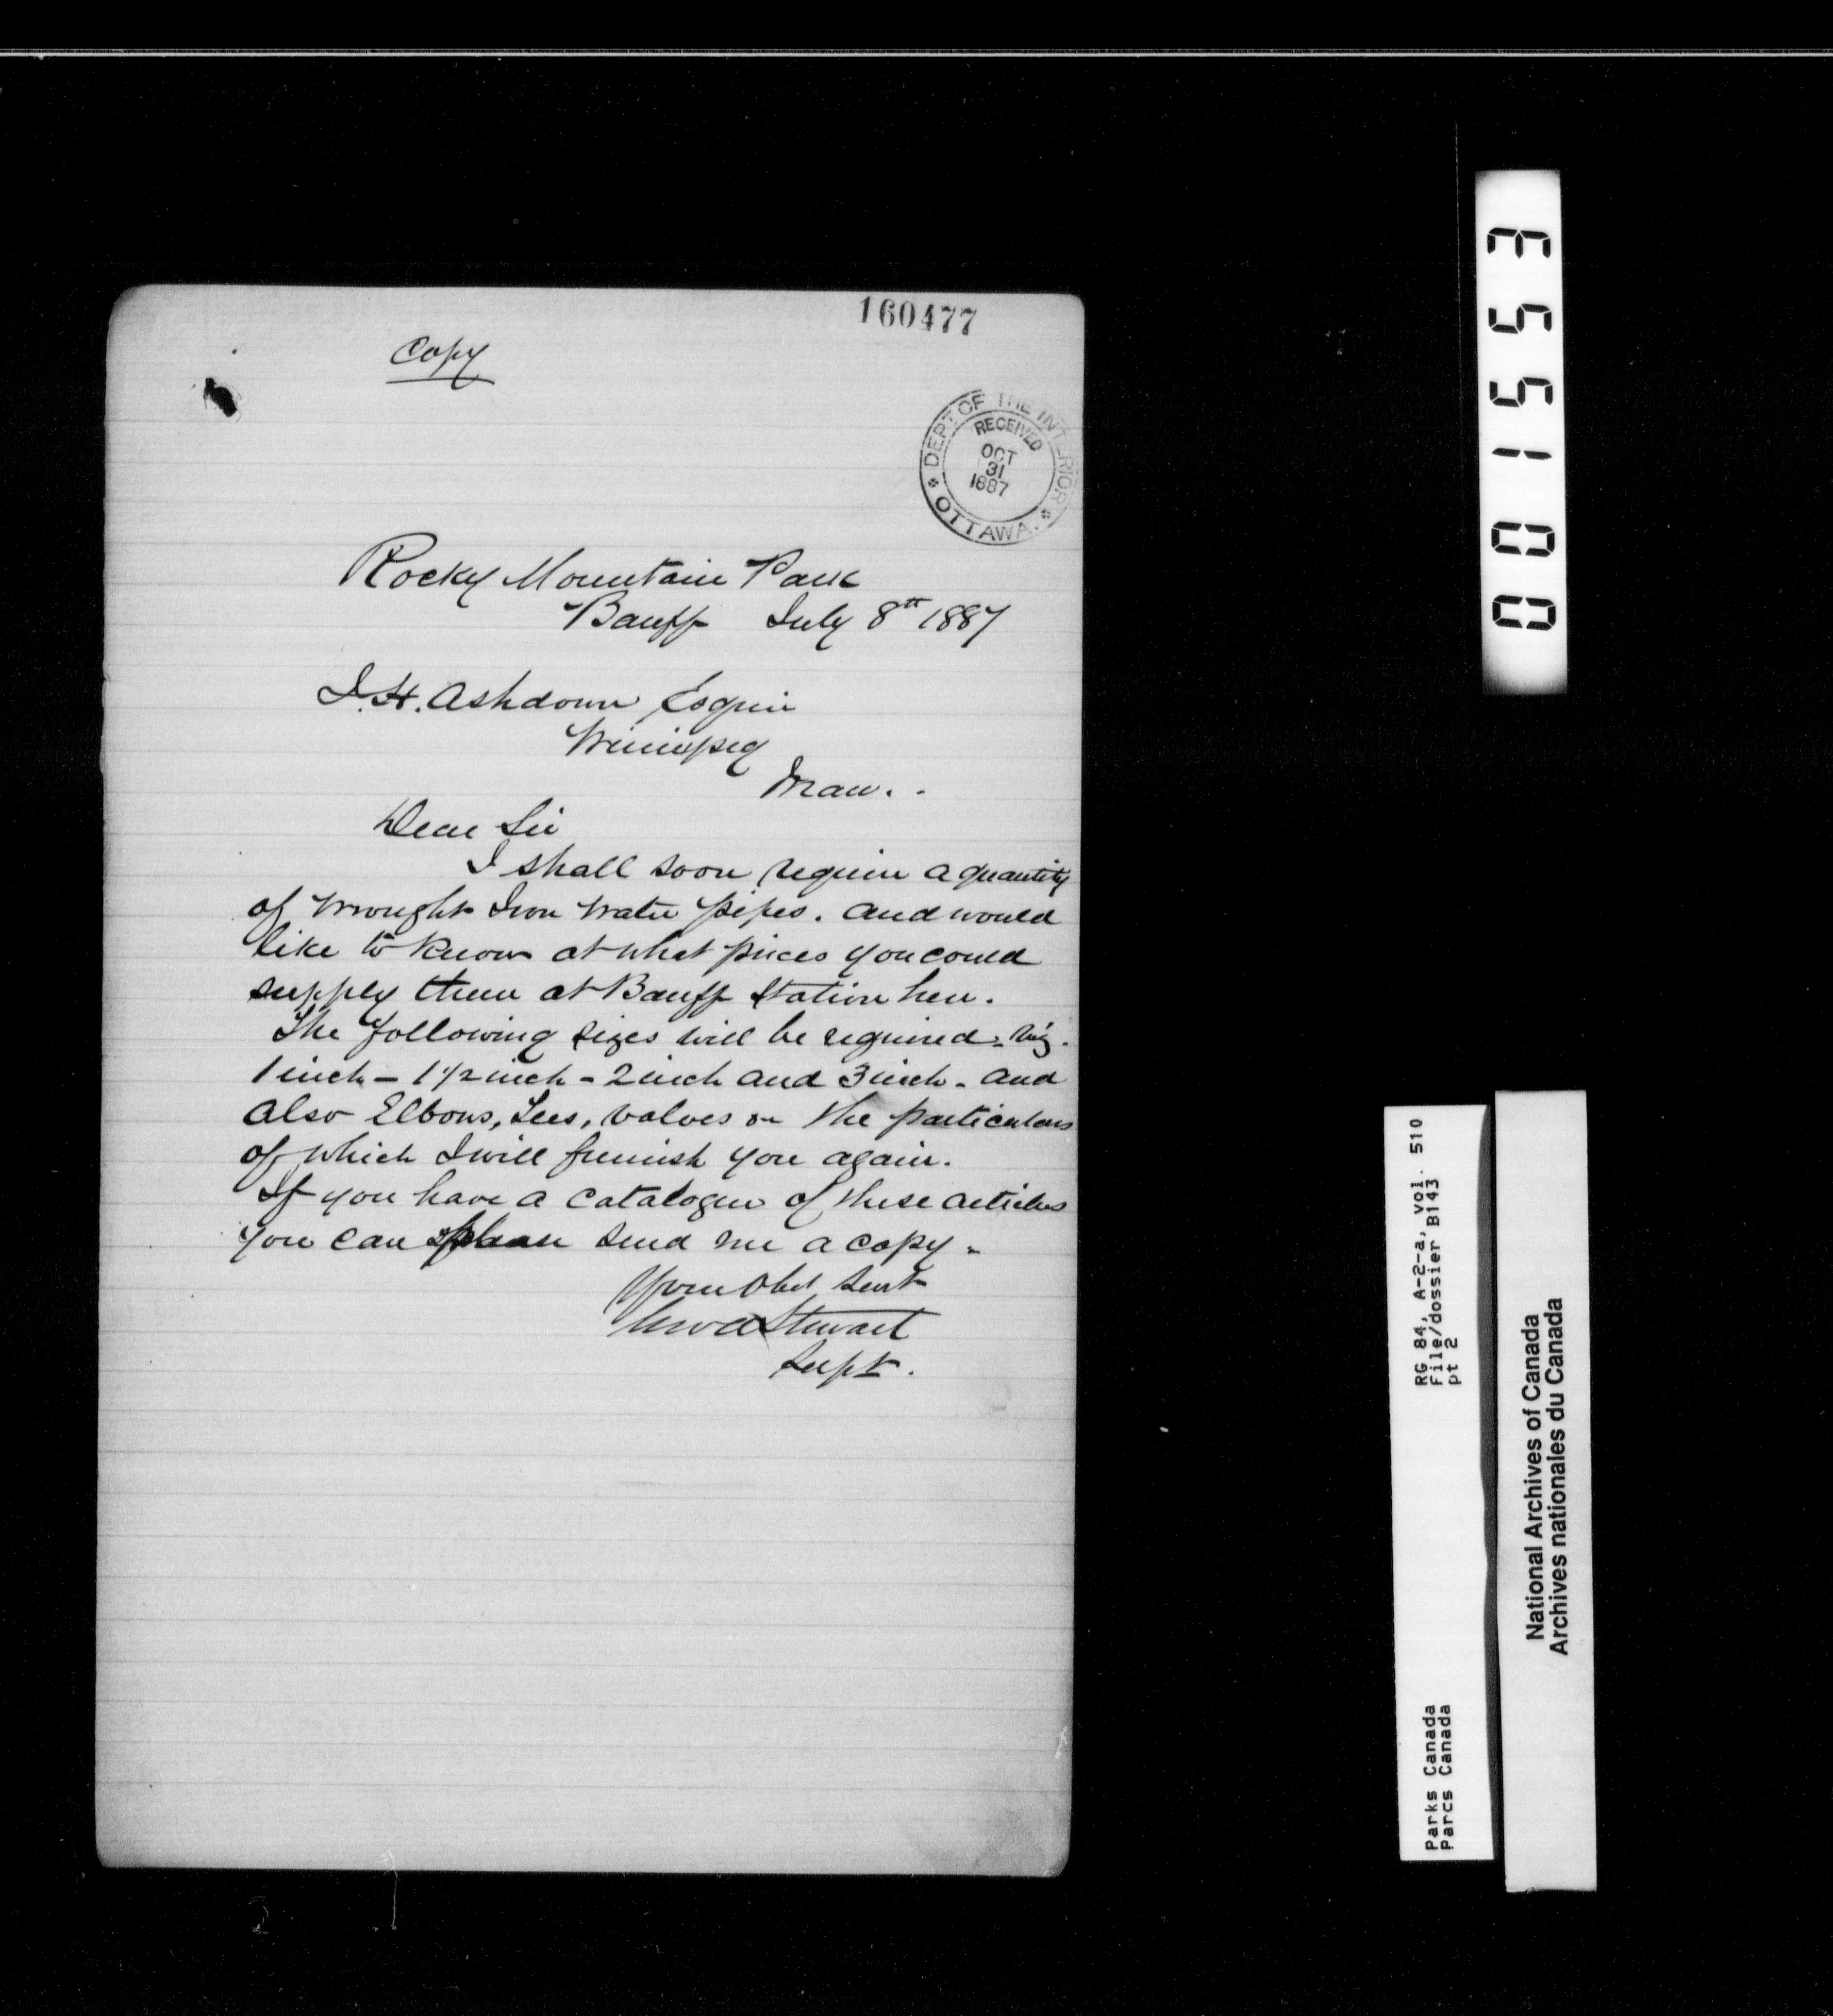 160477
Copy
DEPT OF THE INTERIOR
RECEIVED
OCT
31
1887
OTTAWA.
Rocky Mountain Park
Banff July 8th 1887
J. H. Ashdown Esquire
Winnipeg
Man.
Dear Sir
I shall soon require a quantity
of Wrought Iron Water pipes. and would
like to know at what prices you could
supply them at Banff Station here.
The following sizes will be required - viz.
1 inch - 1 1/2 inch - 2 inch and 3 inch - and
also Elbows, Tees, valves the particulars
of which I will furnish you again.
If you have a Catalogue of these articles
you can please send me a copy -
Your Obd Servt
Geo A Stewart
Supt.
0015153
RG 84, A-2-a, vol. 510
File/dossier B143
pt 2
Parks Canada
Parcs Canada
National Archives of Canada
Archives nationales du Canada